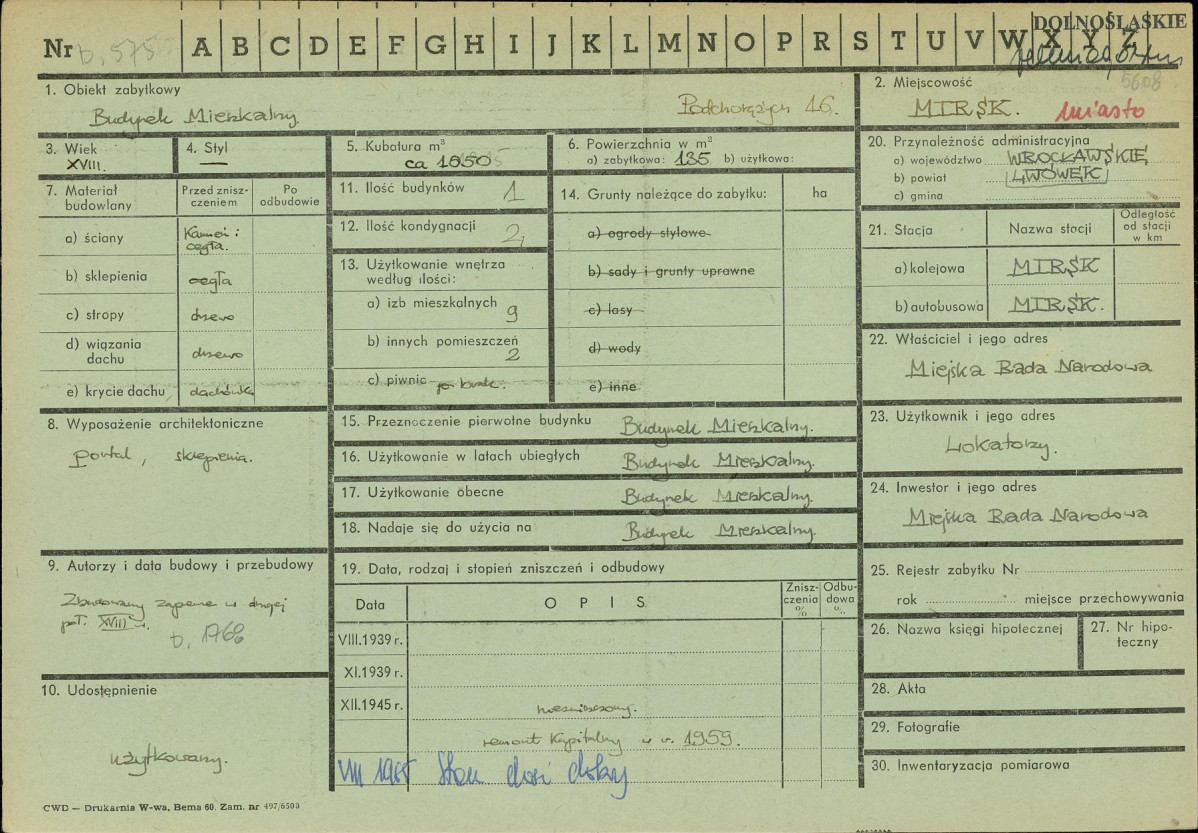 DOLNOŚLĄSKIE
Nr b. 575 A B C D E F G H I J K L M N O P R S T U V W X Y Z
5608
1. Obiekt zabytkowy
Budynek Mieszkalny Podchorążych 16.
2. Miejscowość
MIRSK. miasto
3. Wiek
XVIII.
4. Styl
—
5. Kubatura m³
ca 1050
6. Powierzchnia w m²
a) zabytkowa: 135 b) użytkowa:
20. Przynależność administracyjna
a) województwo WROCŁAWSKIE
b) powiat LWÓWEK
c) gmina
7. Materiał budowlany
Przed zniszczeniem
Po odbudowie
a) ściany Kamień i cegła.
b) sklepienia cegła
c) stropy drzewo
d) wiązania dachu drzewo
e) krycie dachu dachówka
11. Ilość budynków 1
12. Ilość kondygnacji 2,
13. Użytkowanie wnętrza
według ilości:
a) izb mieszkalnych 9
b) innych pomieszczeń 2
c) piwnic brak.
14. Grunty należące do zabytku: ha
a) ogrody stylowe
b) sady i grunty uprawne
c) lasy
d) wody
e) inne
21. Stacja Nazwa stacji Odległość od stacji w km
a) kolejowa MIRSK
b) autobusowa MIRSK.
22. Właściciel i jego adres
Miejska Rada Narodowa
8. Wyposażenie architektoniczne
portal, sklepienia.
15. Przeznoczenie pierwotne budynku Budynek Mieszkalny.
16. Użytkowanie w latach ubiegłych Budynek Mieszkalny.
17. Użytkowanie obecne Budynek Mieszkalny.
18. Nadaje się do użycia na Budynek Mieszkalny.
23. Użytkownik i jego adres
Lokatorzy.
24. Inwestor i jego adres
Miejska Rada Narodowa
9. Autorzy i data budowy i przebudowy
Zbudowany zapewne w drugiej
poł. XVIII w.
b. 1768
19. Data, rodzaj i stopień zniszczeń i odbudowy
Data OPIS Zniszczenia % Odbudowa %
VIII.1939 r.
XI.1939 r.
XII.1945 r. niezniszczony.
remont Kapitalny w r. 1959.
VIII 1965 Stan dość dobry
25. Rejestr zabytku Nr
rok miejsce przechowywania
26. Nazwa księgi hipotecznej
27. Nr hipoteczny
28. Akta
29. Fotografie
30. Inwentaryzacja pomiarowa
10. Udostępnienie
użytkowany.
CWD — Drukarnia W-wa, Bema 60. Zam. nr 497/6500